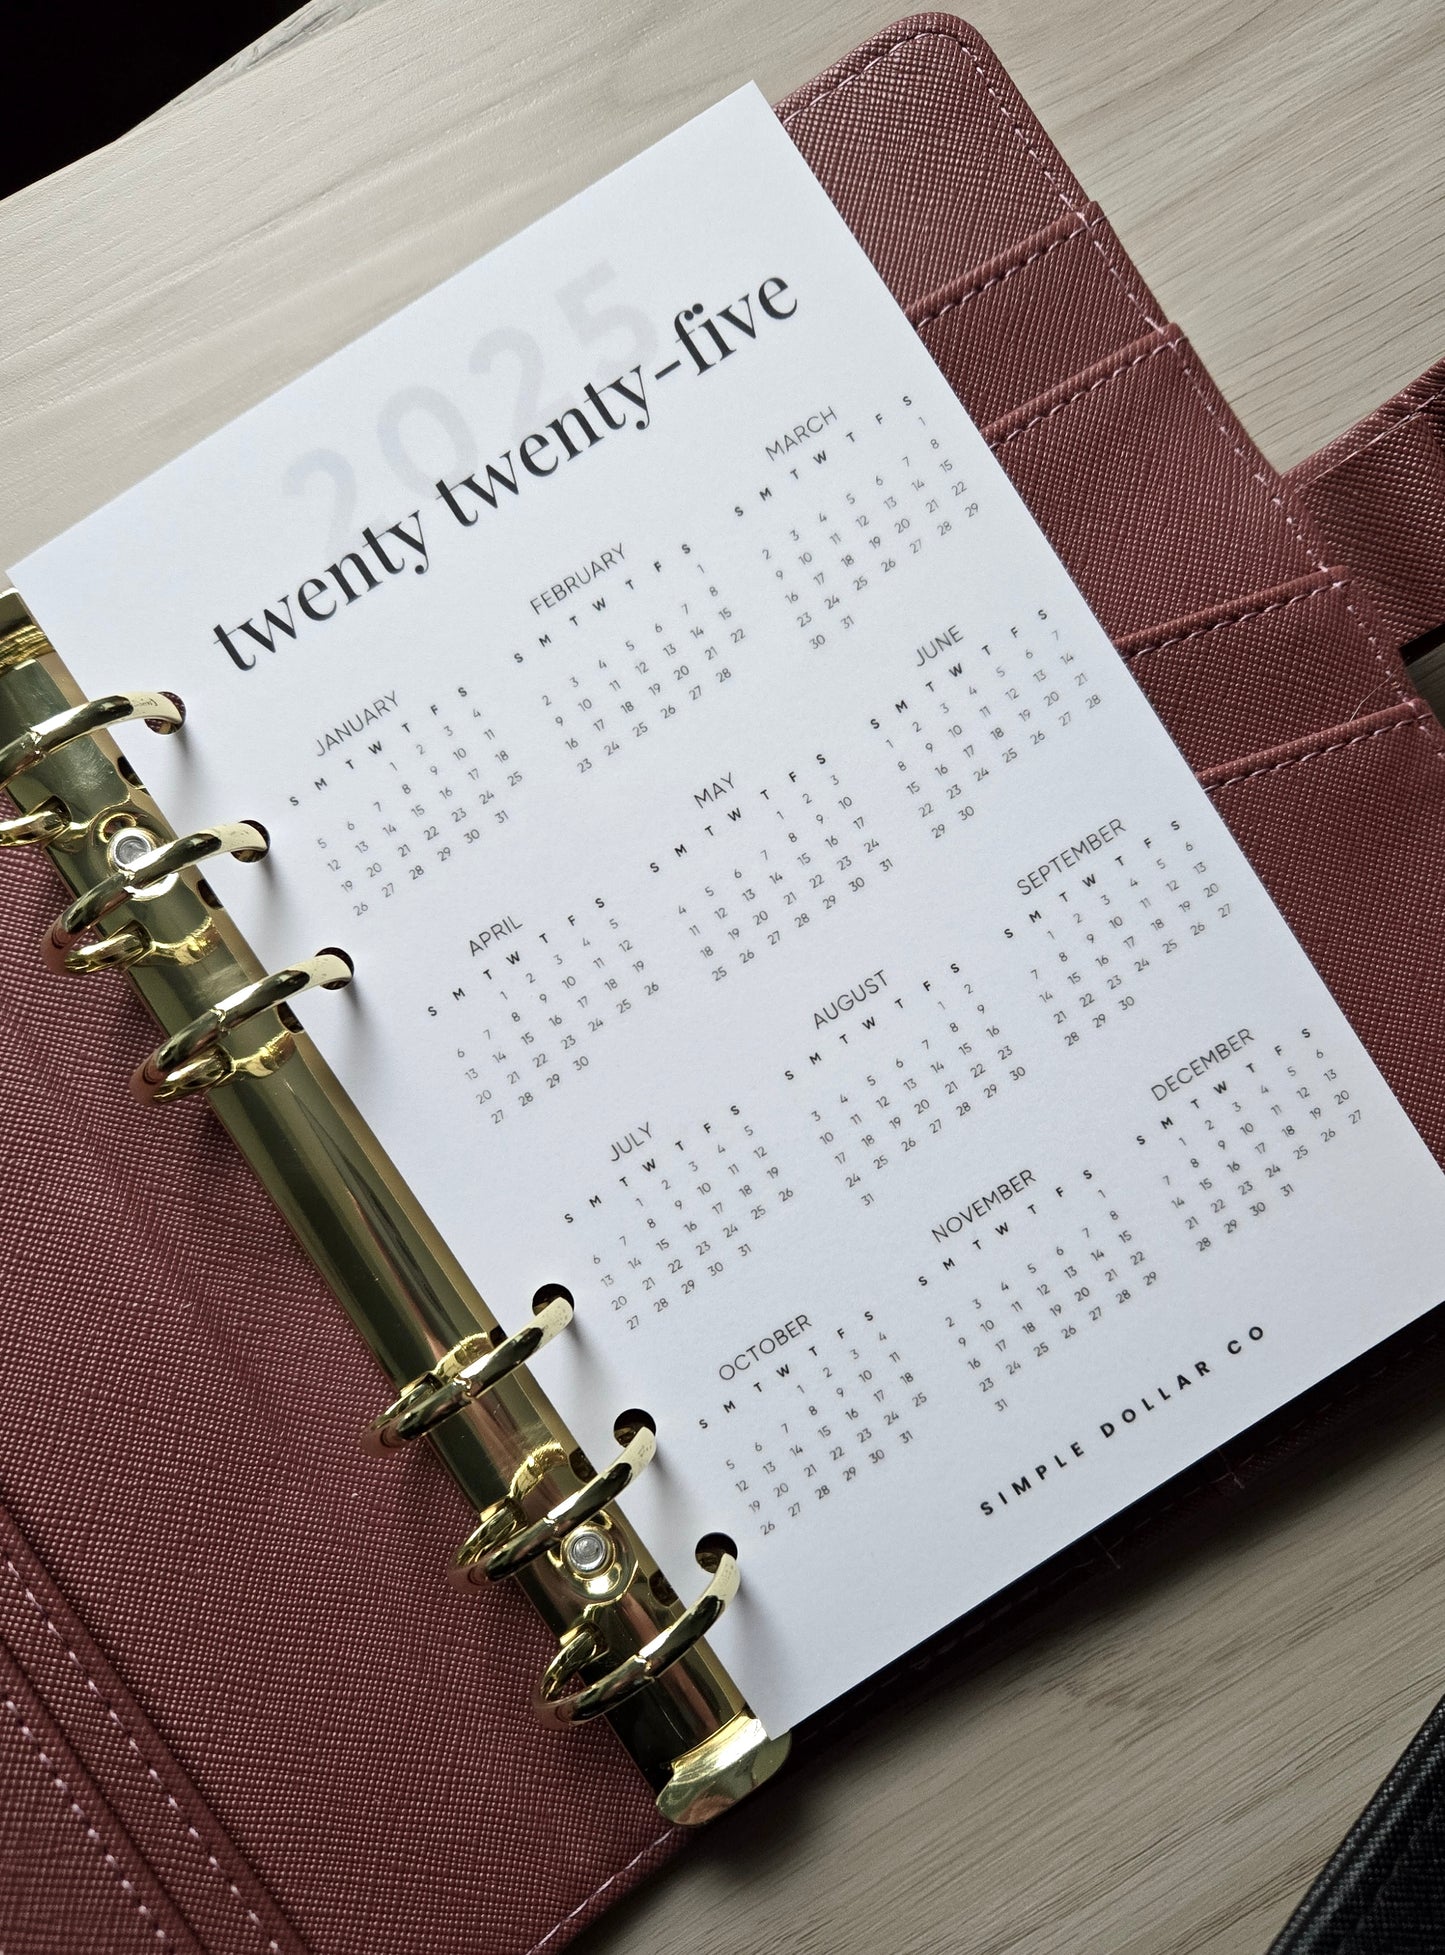 2025
twenty twenty-five
JANUARY
S M T W T F S
1 2 3 4
5 6 7 8 9 10 11
12 13 14 15 16 17 18
19 20 21 22 23 24 25
26 27 28 29 30 31
FEBRUARY
S M T W T F S
1
2 3 4 5 6 7 8
9 10 11 12 13 14 15
16 17 18 19 20 21 22
23 24 25 26 27 28
MARCH
S M T W T F S
1
2 3 4 5 6 7 8
9 10 11 12 13 14 15
16 17 18 19 20 21 22
23 24 25 26 27 28 29
30 31
APRIL
S M T W T F S
1 2 3 4 5
6 7 8 9 10 11 12
13 14 15 16 17 18 19
20 21 22 23 24 25 26
27 28 29 30
MAY
S M T W T F S
1 2 3
4 5 6 7 8 9 10
11 12 13 14 15 16 17
18 19 20 21 22 23 24
25 26 27 28 29 30 31
JUNE
S M T W T F S
1 2 3 4 5 6 7
8 9 10 11 12 13 14
15 16 17 18 19 20 21
22 23 24 25 26 27 28
29 30
JULY
S M T W T F S
1 2 3 4 5
6 7 8 9 10 11 12
13 14 15 16 17 18 19
20 21 22 23 24 25 26
27 28 29 30 31
AUGUST
S M T W T F S
1 2
3 4 5 6 7 8 9
10 11 12 13 14 15 16
17 18 19 20 21 22 23
24 25 26 27 28 29 30
31
SEPTEMBER
S M T W T F S
1 2 3 4 5 6
7 8 9 10 11 12 13
14 15 16 17 18 19 20
21 22 23 24 25 26 27
28 29 30
OCTOBER
S M T W T F S
1 2 3 4
5 6 7 8 9 10 11
12 13 14 15 16 17 18
19 20 21 22 23 24 25
26 27 28 29 30 31
NOVEMBER
S M T W T F S
1
2 3 4 5 6 7 8
9 10 11 12 13 14 15
16 17 18 19 20 21 22
23 24 25 26 27 28 29
31
DECEMBER
S M T W T F S
1 2 3 4 5 6
7 8 9 10 11 12 13
14 15 16 17 18 19 20
21 22 23 24 25 26 27
28 29 30 31
SIMPLE DOLLAR CO